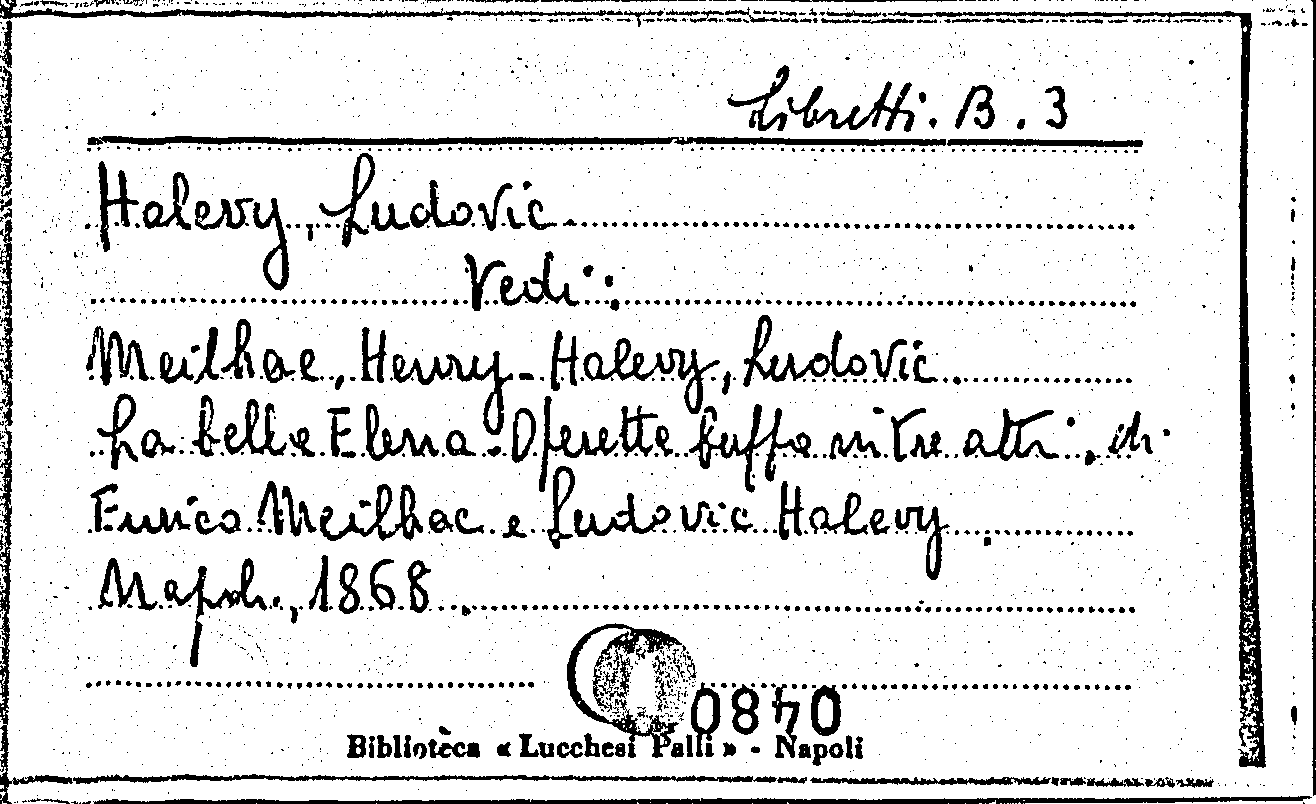 Libretti. B. 3
Halevy, Ludovic
Vedi:
Meilhac, Henry - Halevy, Ludovic.
La bella Elena - Operette buffa in tre atti, di
Enrico Meilhac e Ludovic Halevy.
Napoli, 1868.
0840
Biblioteca « Lucchesi Palli » - Napoli